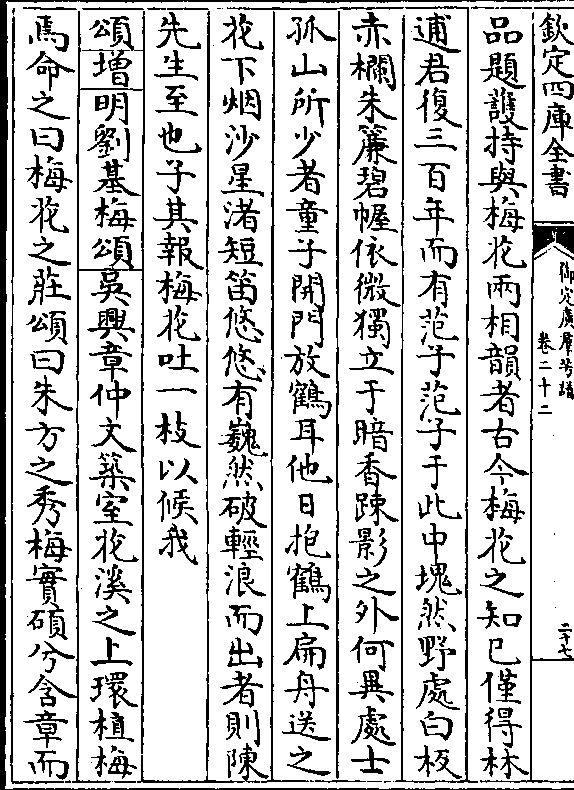 欽定四庫全書
御定廣群芳譜
卷二十二
二十七
品題護持與梅花兩相韻者古今梅花之知己僅得林
逋君復三百年而有范子范子于此中塊然野處白板
赤欄朱簾碧幄依微獨立于暗香踈影之外何異處士
孤山所少者童子開門放鶴耳他日抱鶴上扁舟送之
花下烟沙星渚短笛悠悠有巍然破輕浪而出者則陳
先生至也子其報梅花吐一枝以候我
頌增明劉基梅頌吳興章仲文築室花溪之上環植梅
焉命之曰梅花之莊頌曰朱方之秀梅實碩兮含章而